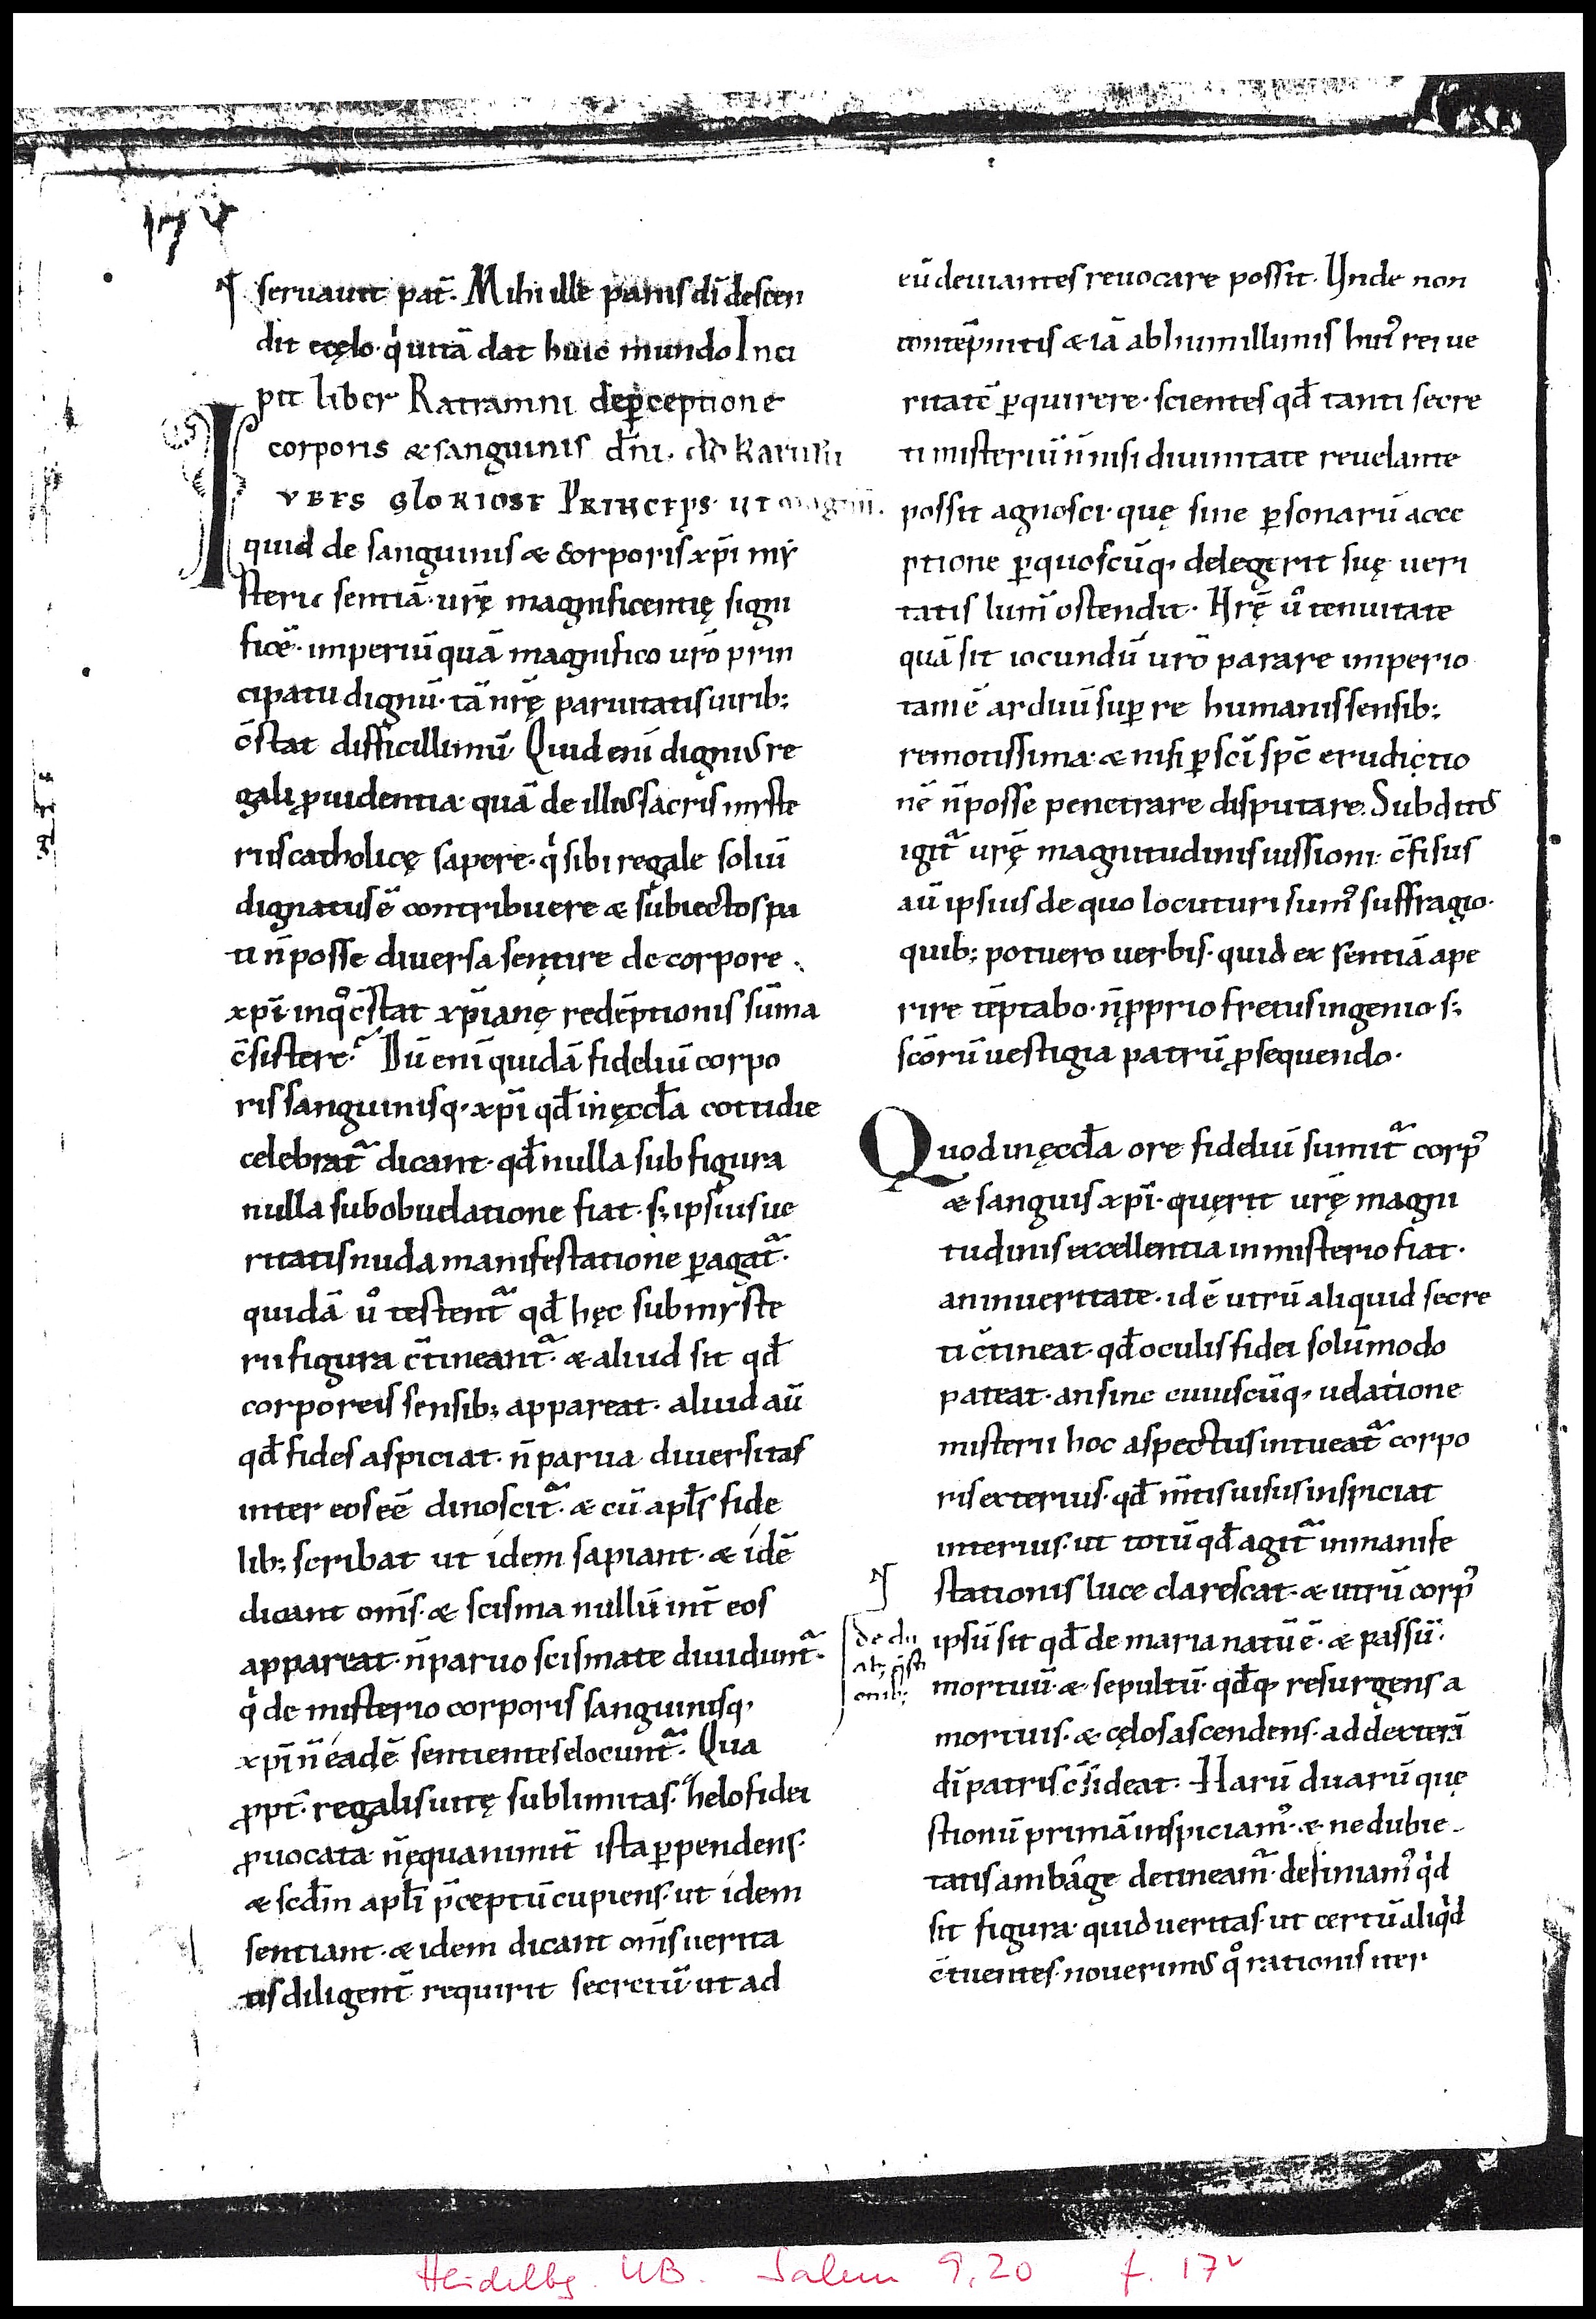 17v
seruauit pat̄. Mihi ille panis dī descen
dit ecęlo. qͥ uitā dat huic mundo Inci
pit liber Ratramni deꝑceptione
corporis & sanguinis dn̄i. ad Karulū
VBES GLORIOSE PRINCEPS. UT magnū.
quid de sanguinis & corporis xp̄i my
sterio sentiā. ur̄ę magnificentię signi
ficē. imperiū quā magnifico ur̄o prin
cipatu dignū. tā nr̄ę paruitatis uirib;
c̄stat difficillimū. Quid eni dignius re
gali ꝓuidentia quā de illius sacris myste
riis catholicę sapere. qͥ sibi regale soliū
dignatus ē contribuere & subiectos pa
ti n̄ posse diuersa sentire de corpore
xp̄i. inqͦ c̄stat xp̄ianę redēptionis sūma
c̄sistere. Dū enī quidā fideliū corpo
ris sanguinisq; xp̄i qd̄ inęccl̄a cottidie
celebrat᷑ dicant. qd̄ nulla sub figura
nulla sub obuelatione fiat. s; ipsius ue
ritatis nuda manifestatione ꝑagat᷑.
quidā uͦ testent᷑ qd̄ hęc sub myste
rii figura c̄tineant᷑. & aliud sit qd̄
corporeis sensib; appareat. aliud aū
qd̄ fides aspiciat. n̄ parua diuersitas
inter eos eē dinoscit᷑. & cū apl̄s fide
lib; scribat ut idem sapiant. & idē
dicant om̄s. & scisma nullū int̄ eos
appareat. n̄ paruo scismate diuidunt᷑.
qͥ de misterio corporis sanguinisq;
xp̄i n̄ eadē sentientes elocunt᷑. Qua
ꝓpt̄. regalis uitę sublimitas. helo fidei
ꝓuocata n̄ ęquanimit̄ ista ꝑpendens.
& scd̄m apl̄i p̄ceptū cupiens. ut idem
sentiant. & idem dicant om̄s uerita
tis diligent̄ requirit secretū. ut ad
eū deuiantes reuocare possit. Unde non
contēpnitis & iā ab humillimis huiꝰ rei ue
ritatē ꝑquirere. scientes qd̄ tanti secre
ti misteriū n̄ nisi diuinitate reuelante
possit agnosci. quę sine ꝑsonarū acce
ptione ꝑquoscūq; delegerit suę ueri
tatis lum̄ ostendit. Nr̄ę uͦ tenuitate
quā sit iocundū ur̄o parare imperio
tam ē arduū suꝑ re humanis sensib;
remotissima. & nisi ꝑ sc̄i sp̄c erudictio
nē n̄ posse penetrare disputare. Subditus
igit᷑ ur̄ę magnitudinis iussioni. c̄fisus
aū ipsius de quo locuturi sumꝰ suffragio.
quib; potuero uerbis. quid ex sentiā ape
rire tēptabo. n̄ ꝓprio fretus ingenio. s;
sc̄orū uestigia patrū ꝓsequendo.
Quod inęccl̄a ore fideliū sumit᷑ corpꝰ
& sanguis xp̄i. quęrit ur̄ę magni
tudinis excellentia in misterio fiat.
an inueritate. id ē utrū aliquid secre
ti c̄tineat. qd̄ oculis fidei solūmodo
pateat. an sine cuiuscūq; uelatione
misterii hoc aspectus intueat᷑ corpo
ris exterius. qd̄ m̄tis uisus inspiciat
interius. ut totū qd̄ agit᷑ inmanife
stationis luce clarescat. & utrū corpꝰ
de du
ab; q̄sti
onib;
ipsū sit qd̄ de maria natū ē. & passū.
mortuū. & sepultū. qd̄q; resurgens a
mortuis. & cęlos ascendens. ad dexterā
dī patris c̄sideat. Harū duarū que
stionū primā inspiciamꝰ. & ne dubie
tatis ambage detineam᷑. definiamꝰ qͥd
sit figura. quid ueritas. ut certū aliqͥd
c̄tuentes. nouerimus qͦ rationis iter
Heidelbg. UB. Salem 9,20 f. 17v